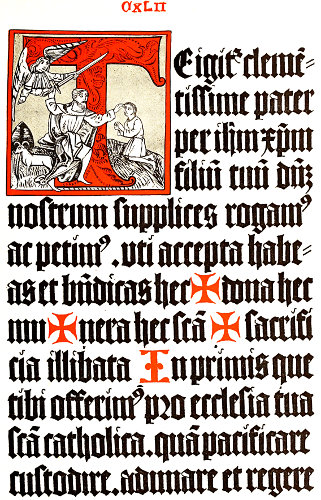 CXLII
TEigit᷑ clemē=
tissime pater
per ihm̄ xp̄m
filiū tuū dn̄z
nostrum supplices rogamꝰ
ac petimꝰ. vti accepta habe=
as et bn̄dicas hec ✠ dona hec
mu ✠ nera hec scā ✠ sacrifi
cia illibata In primis que
tibi offerimꝰ pro ecclesia tua
scā catholica. quā pacificare
custodire. adunare et regere